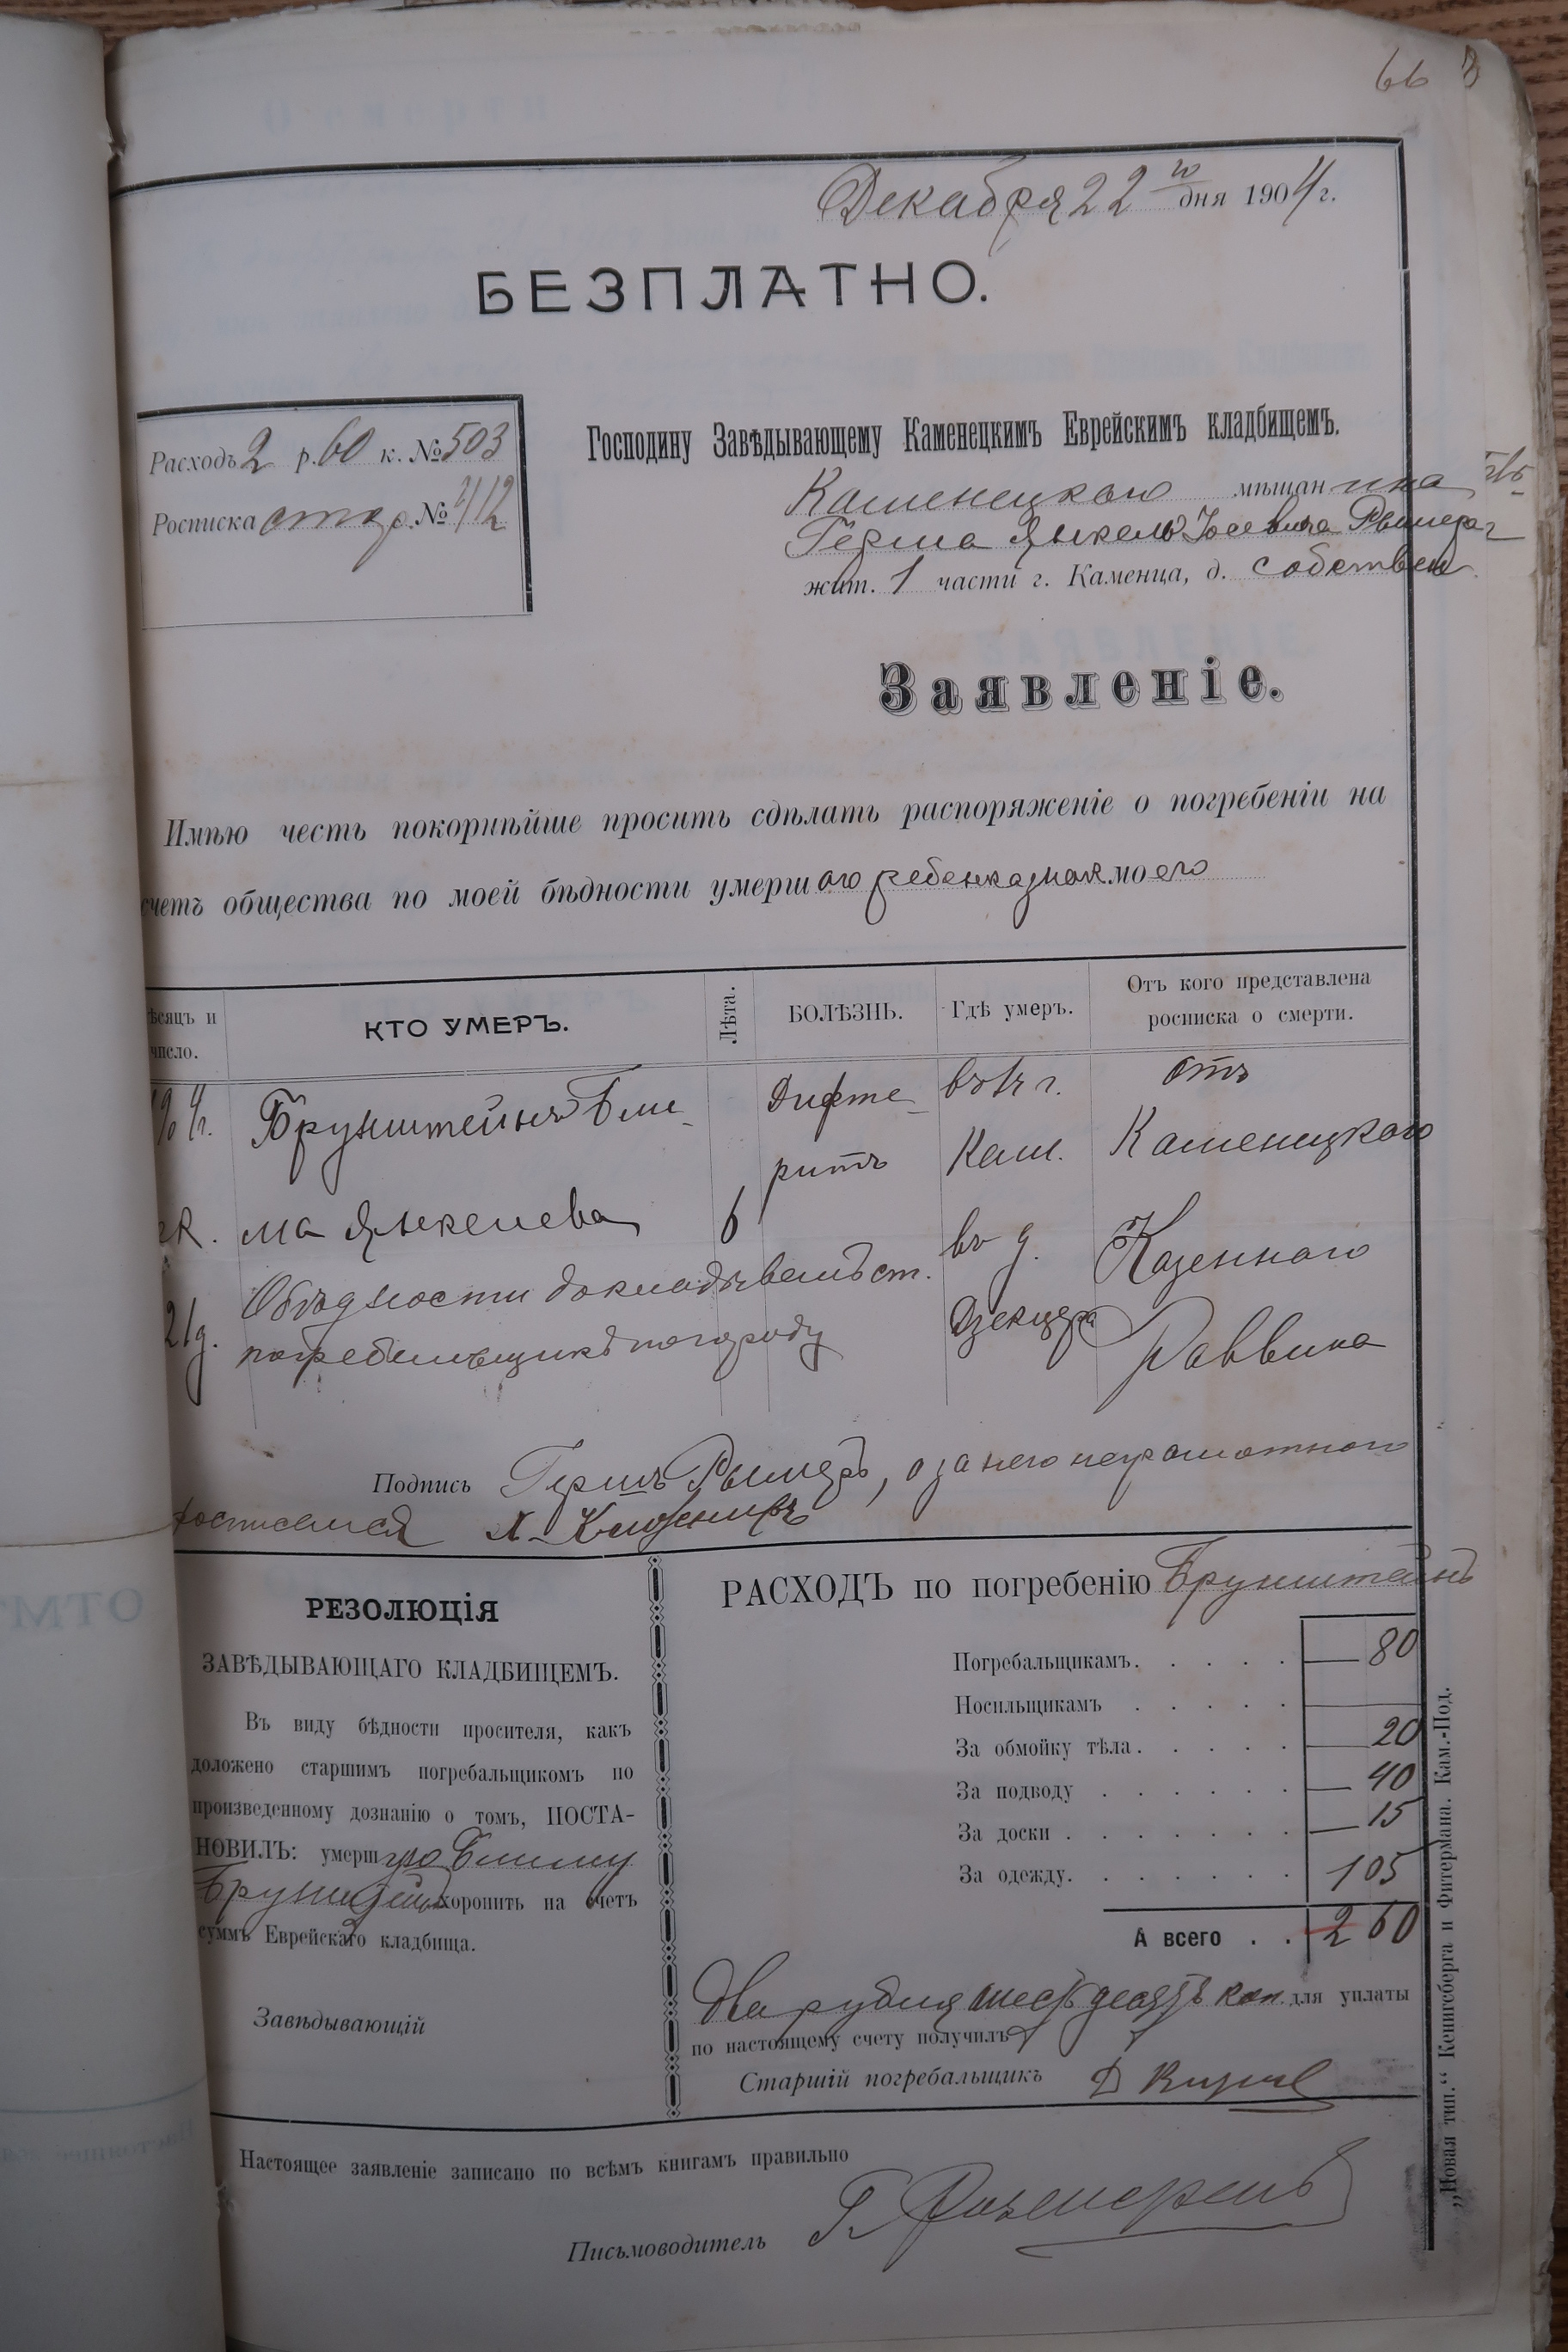 66
Декабря 22 го дня 1904 г.
БЕЗПЛАТНО.
Расходъ 2 р. 60 к. № 503
Росписка № 412
Господину Завѣдывающему Каменецкимъ Еврейскимъ кладбищемъ.
Каменецкого мѣщанина
Герша Янкель Іосевича
жит. 1 части г. Каменца, д. собствен
Заявленіе.
Имѣю честь покорнѣйше просить сдѣлать распоряженіе о погребеніи на
счетъ общества по моей бѣдности умершого ребенка моего
ѣсяцъ и число.
КТО УМЕРЪ.
Лѣта.
БОЛѢЗНЬ.
Гдѣ умеръ.
Отъ кого представлена росписка о смерти.
Брунштейнъ Бли-
Дифте-
въ 1 ч г.
отъ
ритъ
Кам.
Каменецкого
ма Янкелева
6
въ д.
Казенного
О бѣдности докладывалъ ст.
21 д.
погребальщикъ по городу
Раввина
Подпись Гершъ , а за него неграмотного
росписался Х.
РЕЗОЛЮЦІЯ
ЗАВѢДЫВАЮЩАГО КЛАДБИЩЕМЪ.
Въ виду бѣдности просителя, какъ
доложено старшимъ погребальщикомъ по
произведенному дознанію о томъ, ПОСТА-
НОВИЛЪ: умершую Блиму
Брунштейнъ хоронить на счетъ
суммъ Еврейскаго кладбища.
Завѣдывающій
РАСХОДЪ по погребенію Брунштейнъ
Погребальщикамъ. — 80
Носильщикамъ
За обмойку тѣла. — 20
За подводу — 40
За доски — 15
За одежду. 105
А всего . . 2 60
Два рубля шестьдесятъ коп. для уплаты
по настоящему счету получилъ
Старшій погребальщикъ Д
Настоящее заявленіе записано по всѣмъ книгамъ правильно
Письмоводитель Г.
„Новая тип.“ Кенигсберга и Фитермана. Кам.-Под.